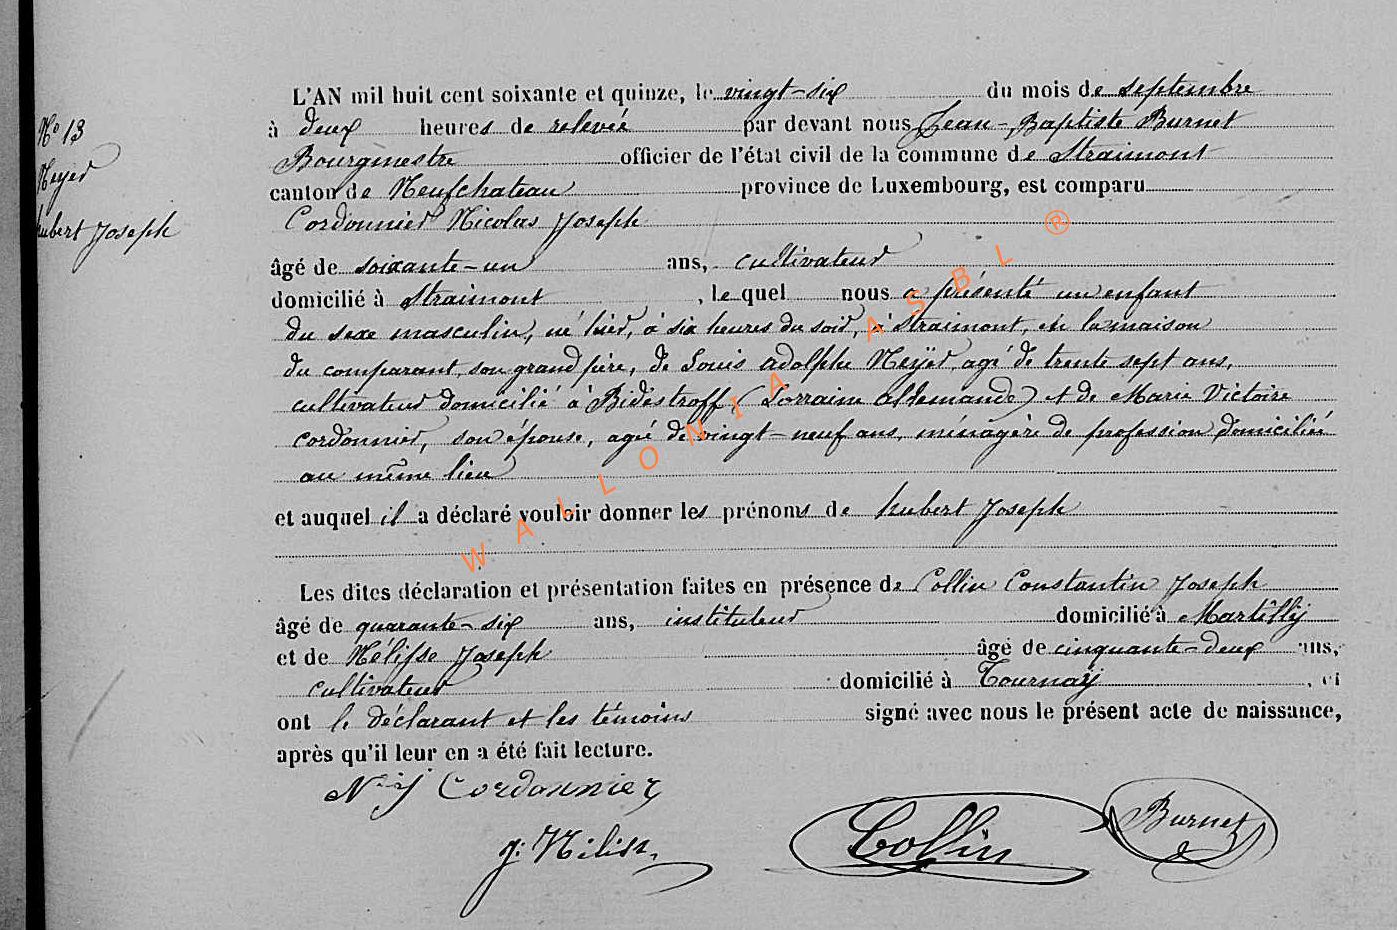 N° 13
Meyer
hubert Joseph
L'AN mil huit cent soixante et quinze, le vingt-six du mois de septembre
à deux heures de relevée par devant nous Jean-Baptiste Burnet
Bourgmestre officier de l'état civil de la commune de Straimont
canton de Neufchateau province de Luxembourg, est comparu
Cordonnier Nicolas Joseph
âgé de soixante-un ans, cultivateur
domicilié à Straimont, le quel nous a présenté un enfant
du sexe masculin, né hier, à six heures du soir, à Straimont, en la maison
du comparant, son grand père, de Louis adolphe Meÿer agé de trente sept ans,
cultivateur domicilié à Bidestroff (Lorraine allemande) et de Marie Victoire
cordonnier, son épouse, agée de vingt-neuf ans, ménagère de profession domiciliée
au même lieu
et auquel il a déclaré vouloir donner les prénoms de hubert Joseph
Les dites déclaration et présentation faites en présence de Collin Constantin Joseph
âgé de quarante-six ans, instituteur domicilié à Martilly
et de Joseph âgé de cinquante-deux ans,
cultivateur domicilié à Tournaÿ, et
ont le déclarant et les témoins signé avec nous le présent acte de naissance,
après qu'il leur en a été fait lecture.
N. J Cordonnier
J.
Collin
Burnet
WALLONIA ASBL ®